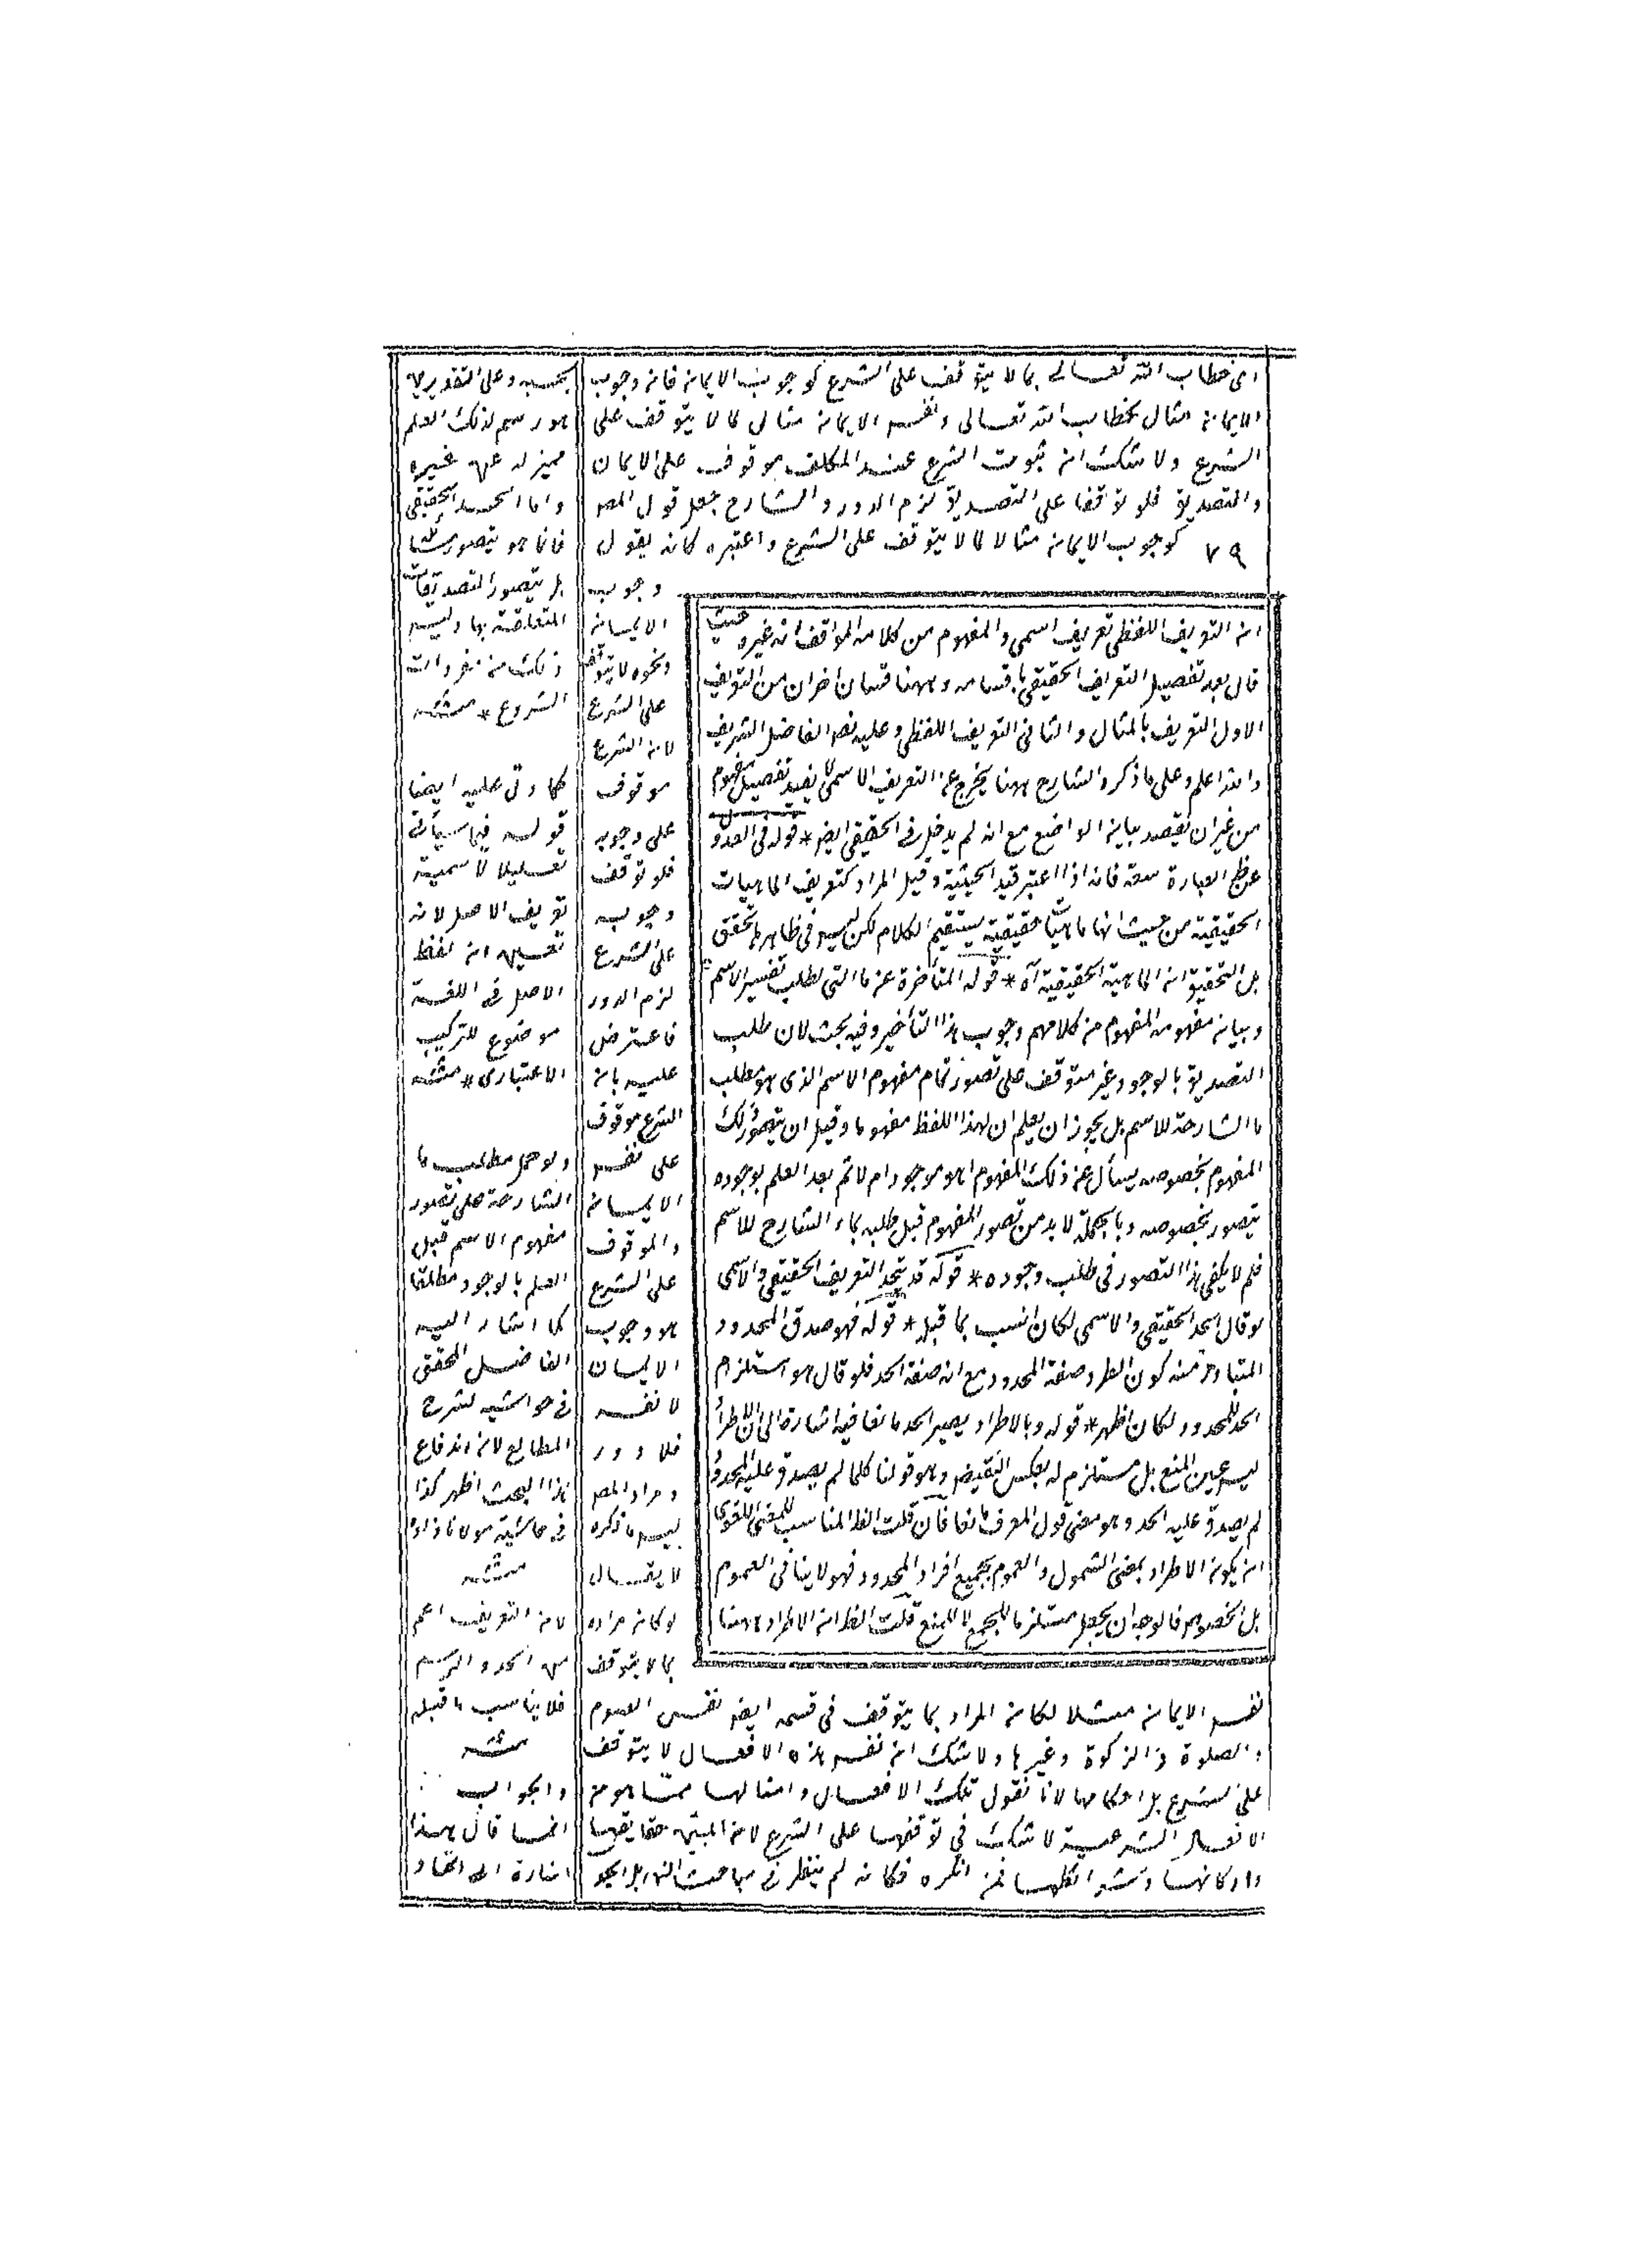 اى خطاب الله تعالى بما لا يتوقف على الشرع كوجوب الايمان فان وجوب
الايمان مثال لخطاب الله تعالى ونفس الايمان مثال لما لا يتوقف على
الشرع ولا شك ان ثبوت الشرع عند المكلف موقوف على الايمان
والتصديق فلو توقفا على التصديق لزم الدور والشارح جعل قول المص
٧٩ كوجوب الايمان مثالا لما لا يتوقف على الشرع واعتبره كانه يقول
وجوب
الايمان
ونحوه لا يتوقف
على الشرع
لان الشرع
موقوف
على وجوبه
فلو توقف
وجوبه
على الشرع
لزم الدور
فاعترض
عليه بان
الشرع موقوف
على نفس
الايمان
والموقوف
على الشرع
هو وجوب
الايمان
لا نفسه
فلا دور
ومراد المص
ليس ما ذكره
لا يقال
لو كان مراده
بما لا يتوقف
نفس الايمان مثلا لكان المراد بما يتوقف فى قسمه ايضا نفس الصوم
والصلوة والزكوة وغيرها ولا شك ان نفس هذه الافعال لا يتوقف
على الشرع بل احكامها لانا نقول تلك الافعال وامثالها مما هو من
الافعال الشرعية لا شك فى توقفها على الشرع لان المبين حقايقها
واركانها وشرائطها فمن انكره فكانه لم ينظر فى مباحث النهى بل الجو
ان التعريف اللفظى تعريف اسمى والمفهوم من كلام المواقف انه غيره حيث
قال بعد تفصيل التعريف الحقيقى باقسامه وههنا قسمان اخران من التعريف
الاول التعريف بالمثال والثانى التعريف اللفظى وعليه نص الفاضل الشريف
والله اعلم وعلى ما ذكره الشارح ههنا يخرج عن التعريف الاسمى ما يفيد تفصيل مفهوم
من غير ان يقصد بيان الواضع مع انه لم يدخل فى الحقيقى ايضا * قوله فى العدو
عن ظ العبارة سعة فانه اذا اعتبر قيد الحيثية وقيل المراد كتعريف الماهيات
الحقيقية من حيث انها ماهيات حقيقية يستقيم الكلام لكن ليس فى ظاهره تحقق
بل التحقيق ان الماهية الحقيقية آه * قوله المتأخرة عن ما التى لطلب تفسير الاسم
وبيان مفهومه المفهوم من كلامهم وجوب هذا التأخير وفيه بحث لان طلب
التصديق بالوجود غير متوقف على تصور تمام مفهوم الاسم الذى هو مطلب
ما الشارحة للاسم بل يجوز ان يعلم ان لهذا اللفظ مفهوما وقبل ان يتصور ذلك
المفهوم بخصوصه يسأل عن ذلك المفهوم اهو موجود ام لا ثم بعد العلم بوجوده
يتصور بخصوصه وبالجملة لا بد من تصور المفهوم قبل طلبه بما الشارح للاسم
فلم لا يكفى هذا التصور فى طلب وجوده * قوله قد يتحد التعريف الحقيقى والاسمى
لو قال الحد الحقيقى والاسمى لكان انسب بما قبله * قوله فهو صدق المحدود
المتبادر منه كون الطرد صفة المحدود مع انه صفة الحد فلو قال هو استلزام
الحد للمحدود لكان اظهر * قوله وبالاطراد يصير الحد مانعا فيه اشارة الى ان الاطراد
ليس عين المنع بل مستلزم له بعكس النقيض وهو قولنا كلما لم يصدق عليه المحدود
لم يصدق عليه الحد وهو معنى قول المعرف مانعا فان قلت الظ المناسب للمعنى اللغوى
ان يكون الاطراد بمعنى الشمول والعموم بجميع افراد المحدود فهو لا ينافى العموم
بل الخصوص فالوجه ان يجعل مستلزما للجمع لا للمنع قلت الظ ان الاطراد ههنا
بخصه وعلى التقديرين
هو رسم لذلك العلم
مميز له عن غيره
واما الحد الحقيقى
فانما هو بتصور مسائله
بل يتصور التصديقات
المتعلقة بها وليس
ذلك من مقدمات
الشروع * منه
كما دل عليه ايضا
قوله فيما سيأتى
تعليلا لاسمية
تعريف الاصل لانه
تعيين ان لفظ
الاصل فى اللغة
موضوع للتركيب
الاعتبارى * منه
ولو حمل مطلب ما
الشارحة على تصور
مفهوم الاسم قبل
العلم بالوجود مطلقا
كما اشار اليه
الفاضل المحقق
فى حواشيه لشرح
المطالع لان اندفاع
هذا البحث اظهر كذا
فى حاشية مولانا زاده
منه
لان التعريف اعم
من الحد والرسم
فلا يناسب ما قبله
منه
والجواب
انما قال هذا
اشارة الى اتحاد